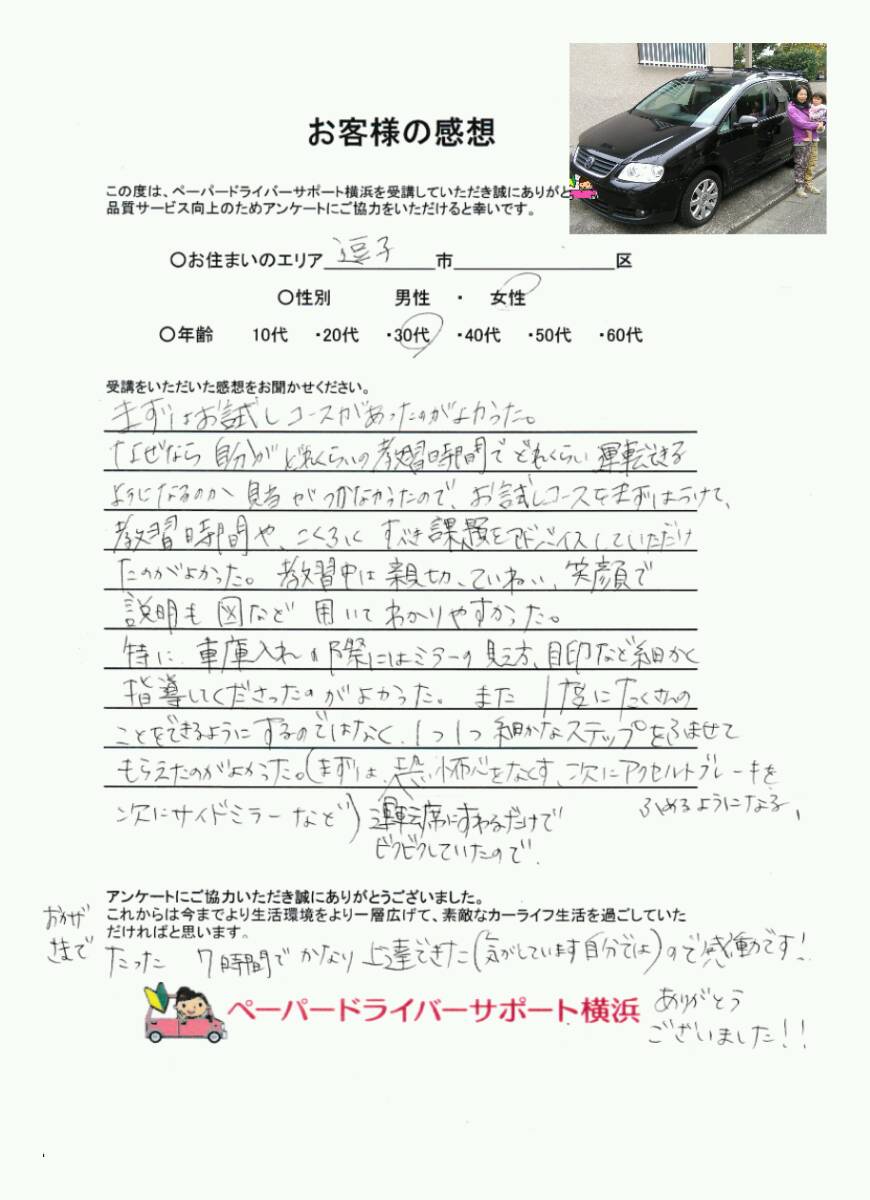 お客様の感想
この度は、ペーパードライバーサポート横浜を受講していただき誠にありがと
品質サービス向上のためアンケートにご協力をいただけると幸いです。
○お住まいのエリア 逗子 市 区
○性別 男性 ・ 女性
○年齢 10代 ・20代 ・30代 ・40代 ・50代 ・60代
受講をいただいた感想をお聞かせください。
まずはお試しコースがあったのがよかった。
なぜなら 自分が どれくらいの教習時間で どれくらい 運転できる
ようになるのか 見当 がつかなかったので、お試しコースをまずはうけて、
教習時間や、こくふく すべき課題をアドバイスしていただけ
たのがよかった。教習中は親切、ていねい、笑顔で
説明も 図など 用いて わかりやすかった。
特に、車庫入れの際にはミラーの見え方、目印など細かく
指導してくださったのがよかった。また 1度にたくさんの
ことをできるようにするのではなく、1つ1つ細かなステップをふませて
もらえたのがよかった。(まずは、恐怖心をなくす、次にアクセルとブレーキを
ふめるようになる、
次にサイドミラーなど)
運転席にすわるだけで
ビクビクしていたので、
アンケートにご協力いただき誠にありがとうございました。
これからは今までより生活環境をより一層広げて、素敵なカーライフ生活を過ごしていた
だければと思います。
おかげ
さまで
たった 7時間で かなり 上達できた(気がしています自分では)ので感動です!
ペーパードライバーサポート横浜
ありがとう
ございました!!